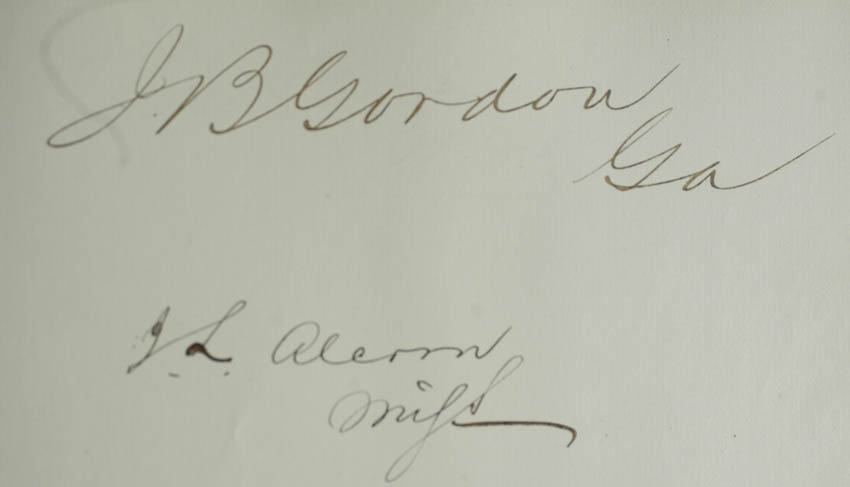 J. B Gordon
Ga
J. L. Alcorn
Miss